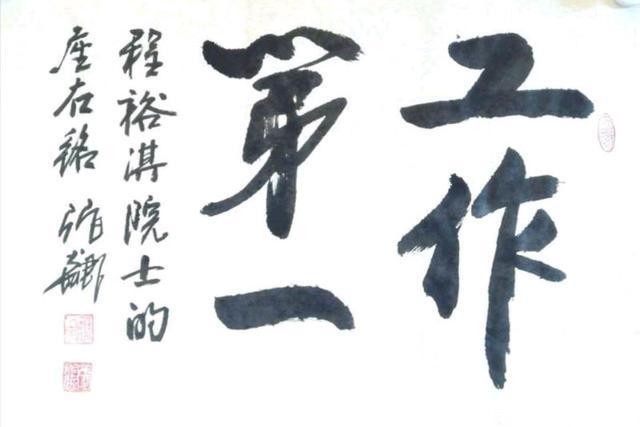 工作
第一
程裕淇院士的
座右铭